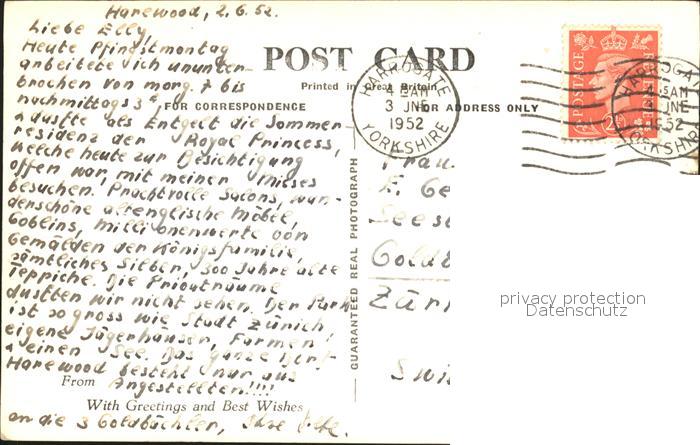 Harewood, 2.6.52.
Liebe Elly,
Heute Pfingstmontag
arbeitete ich ununter-
brochen von morg. 7 bis
nachmittags 3
POST CARD
Printed in Great Britain
FOR CORRESPONDENCE
FOR ADDRESS ONLY
HARROGATE
AM
3 JNE
1952
YORKSHIRE
POSTAGE
HARROGA
AM
JNE
1952
YORKSHI
dustte als Entgelt die Sommer
residenz der Royal Princess,
welche heute zur Besichtigung
offen war, mit meinen Misses
besuchen. Prachtvolle Salons, wun-
derschöne altenglische Möbel,
Goblins, Millionenwerte von
Gemälden der Königsfamilie,
sämtliches Silber, 300 Jahre alte
Teppiche. Die Privaträume
dustten wir nicht sehen. Der Park
ist so gross wie Stadt Zürich
eigene Jägerhäuser, Farmen!
einen See. Das ganze Dorf
Harewood besteht nur aus
Angestellten!!!!
From
With Greetings and Best Wishes
an die 3 Goldbächler, Ihre
GUARANTEED REAL PHOTOGRAPH
Frau
F. Ge
Seest
Goldb
Züri
Swi
privacy protection
Datenschutz